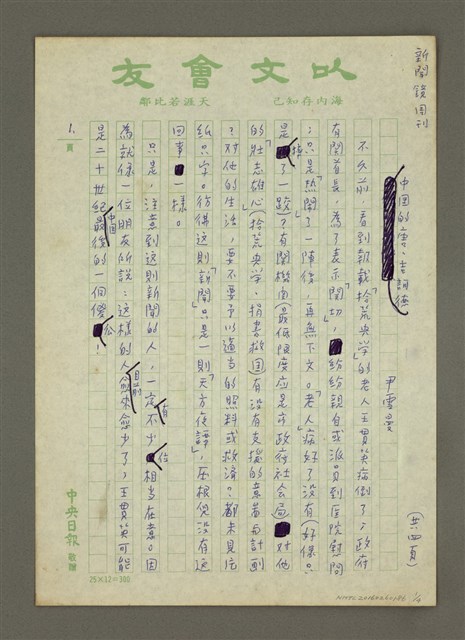 新聞鏡周刊
以文會友
海內存知己　天涯若比鄰
中國的唐·吉訶德
尹雪曼
(共四頁)
不久前，看到報載「拾荒興學」的老人王貫英病倒了；政府
有關首長，為了表示「關切」，紛紛親自或派員到醫院慰問
；只是「熱鬧」了一陣後，再無下文。「老人」病好了沒有(好像只
是摔了一跤)？有關機構(最低限度應是市政府社會局)對他
的「壯志雄心」(拾荒興學、捐書救國)有沒有支援的意願與計劃
？對他的生活，要不要予以適當的照料或救濟？都未見片
紙隻字。彷彿這則「新聞」只是一則「天方夜譚」，壓根兒沒有這
回事一樣。
只是，注意到這則新聞的人，一定有不少位相當在意。因
為就像一位朋友所說：這樣的人目前愈來愈少了，王貫英可能
是二十世紀中國最後的一個傻公！
1. 頁
中央日報 敬贈
25×12=300